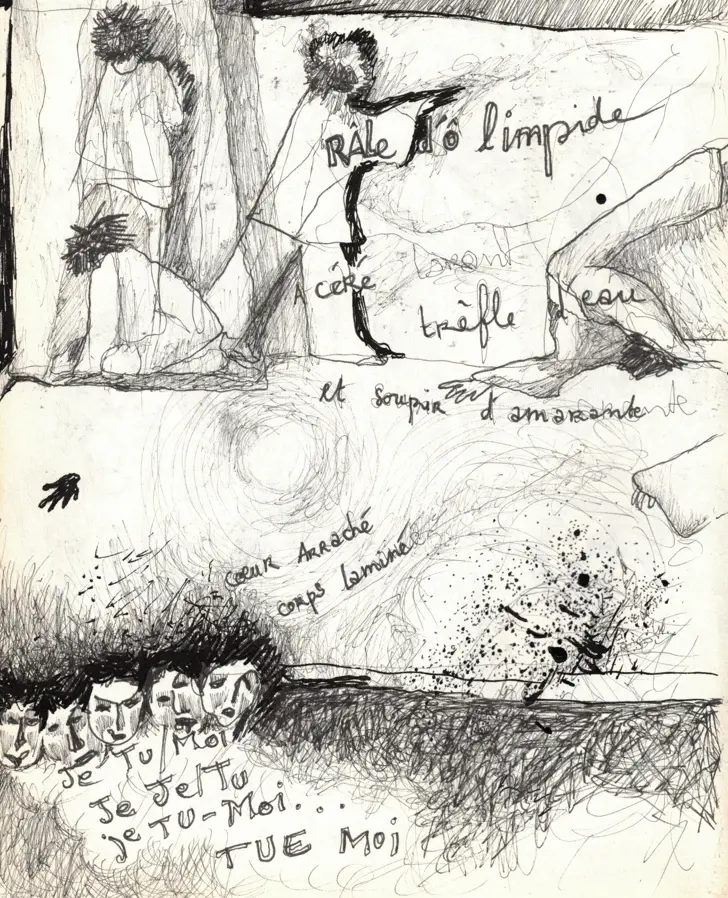 RÂLE d'ô limpide
A CéRé
trêfle l'eau
et soupir d'amarante
Coeur Arraché
corps laminé
Je Tu/Moi
Je Je/Tu
je TU-Moi...
TUE Moi